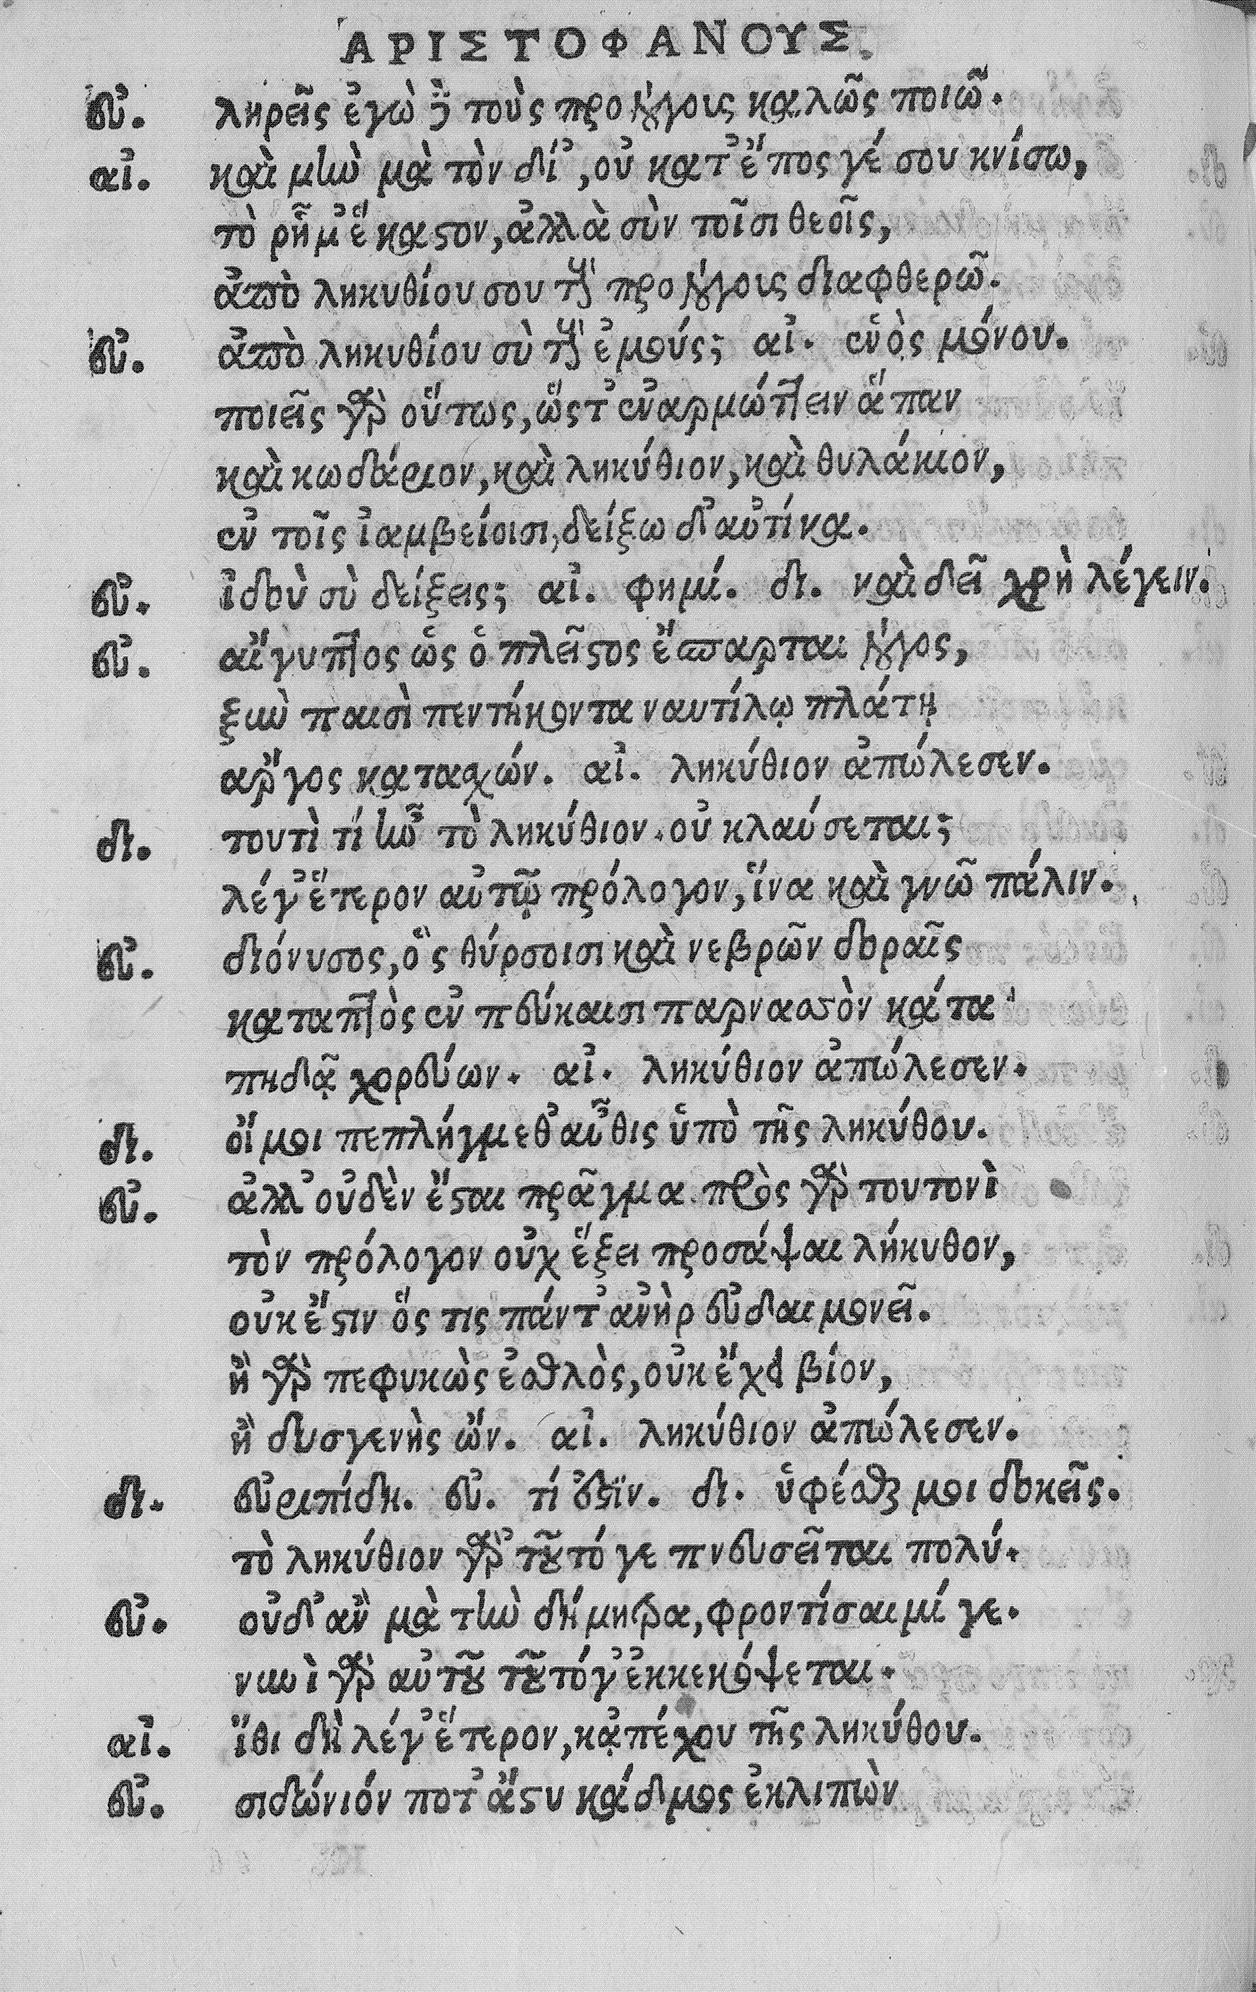 ΑΡΙΣΤΟΦΑΝΟΥΣ.
εὐ. ληρεῖς ἐγὼ δὲ τοὺς προλόγους καλῶς ποιῶ.
αἰ. καὶ μὴν μὰ τὸν δί', οὐ κατ' ἔπος γέ σου κνίσω,
τὸ ῥῆμ' ἕκαστον, ἀλλὰ σὺν τοῖσι θεοῖς,
ἀπὸ ληκυθίου σου τοὺς προλόγους διαφθερῶ.
εὐ. ἀπὸ ληκυθίου σὺ τοὺς ἐμούς; αἰ. ἑνὸς μόνου.
ποιεῖς γὰρ οὕτως, ὥστ' ἐναρμόττειν ἅπαν
καὶ κωδάριον, καὶ ληκύθιον, καὶ θυλάκιον,
ἐν τοῖς ἰαμβείοισι, δείξω δ' αὐτίκα.
εὐ. ἰδοὺ σὺ δείξεις; αἰ. φημί. δι. καὶ δεῖ χρὴ λέγειν.
εὐ. αἴγυπτος ὡς ὁ πλεῖστος ἔσπαρται λόγος,
ξὺν παισὶ πεντήκοντα ναυτίλῳ πλάτῃ
ἄργος κατασχών. αἰ. ληκύθιον ἀπώλεσεν.
δι. τουτὶ τί ἦν τὸ ληκύθιον. οὐ κλαύσεται;
λέγ' ἕτερον αὐτῷ πρόλογον, ἵνα καὶ γνῶ πάλιν.
εὐ. διόνυσος, ὃς θύρσοισι καὶ νεβρῶν δοραῖς
καταπτὸς ἐν πεύκαισι παρνασὸν κάτα
πηδᾷ χορεύων. αἰ. ληκύθιον ἀπώλεσεν.
δι. οἴμοι πεπλήγμεθ' αὖθις ὑπὸ τῆς ληκύθου.
εὐ. ἀλλ' οὐδὲν ἔσται πρᾶγμα. πρὸς γὰρ τουτονὶ
τὸν πρόλογον οὐχ ἕξει προσάψαι λήκυθον,
οὐκ ἔστιν ὅς τις πάντ' ἀνὴρ εὐδαιμονεῖ.
ἢ γὰρ πεφυκὼς ἐσθλὸς, οὐκ ἔχει βίον,
ἢ δυσγενὴς ὤν. αἰ. ληκύθιον ἀπώλεσεν.
δι. εὐριπίδη. εὐ. τί ἐστίν. δι. ὑφέσθαι μοι δοκεῖς.
τὸ ληκύθιον γὰρ τοῦτό γε πνευσεῖται πολύ.
εὐ. οὐδ' ἂν μὰ τὴν δήμητρα, φροντίσαιμί γε.
νυνὶ γὰρ αὐτοῦ τοῦτό γ' ἐκκεκόψεται.
αἰ. ἴθι δὴ λέγ' ἕτερον, κἀπέχου τῆς ληκύθου.
εὐ. σιδώνιόν ποτ' ἄστυ κάδμος ἐκλιπὼν